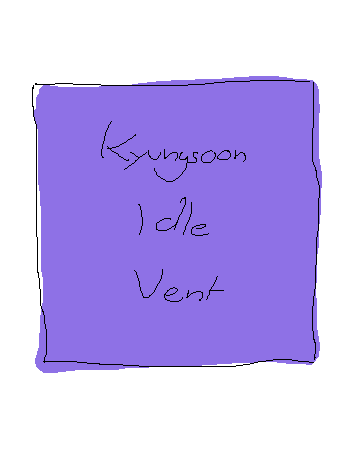 Kyungsoon
Idle
Vent